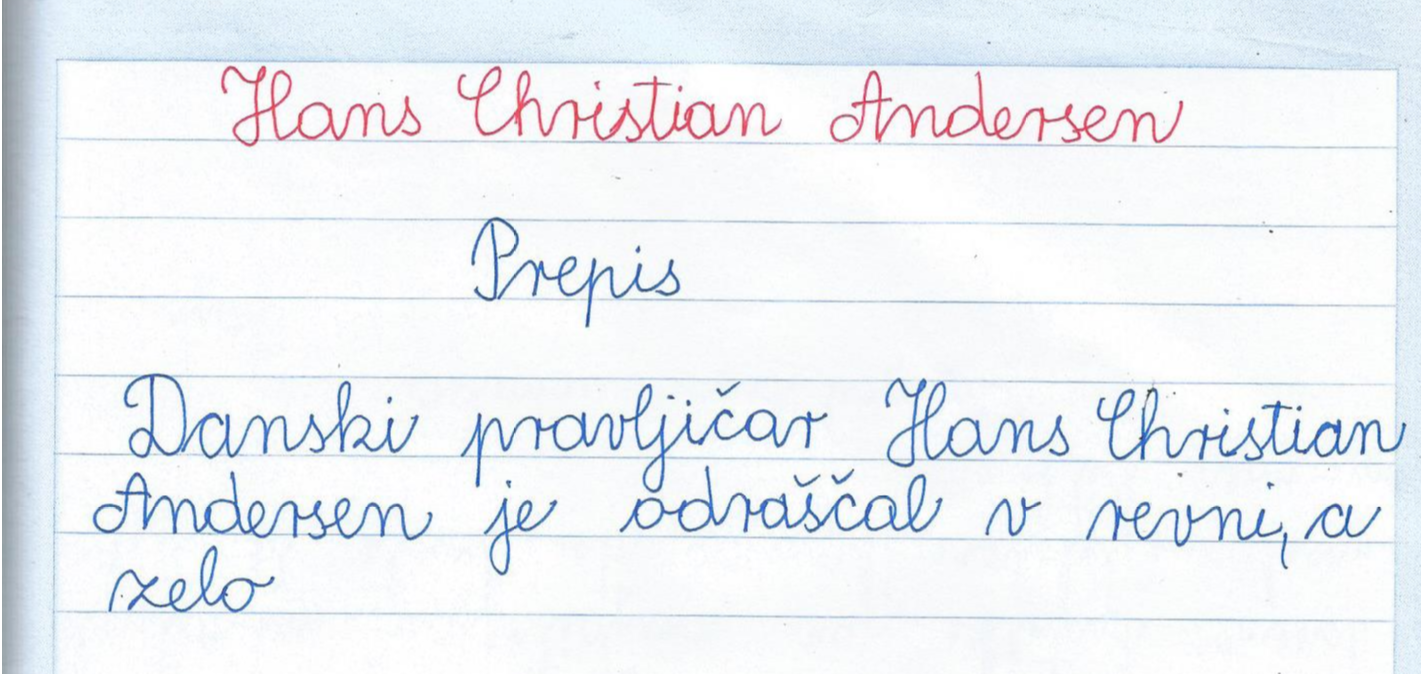 Hans Christian Andersen
Prepis
Danski pravljičar Hans Christian
Andersen je odraščal v revni, a
zelo